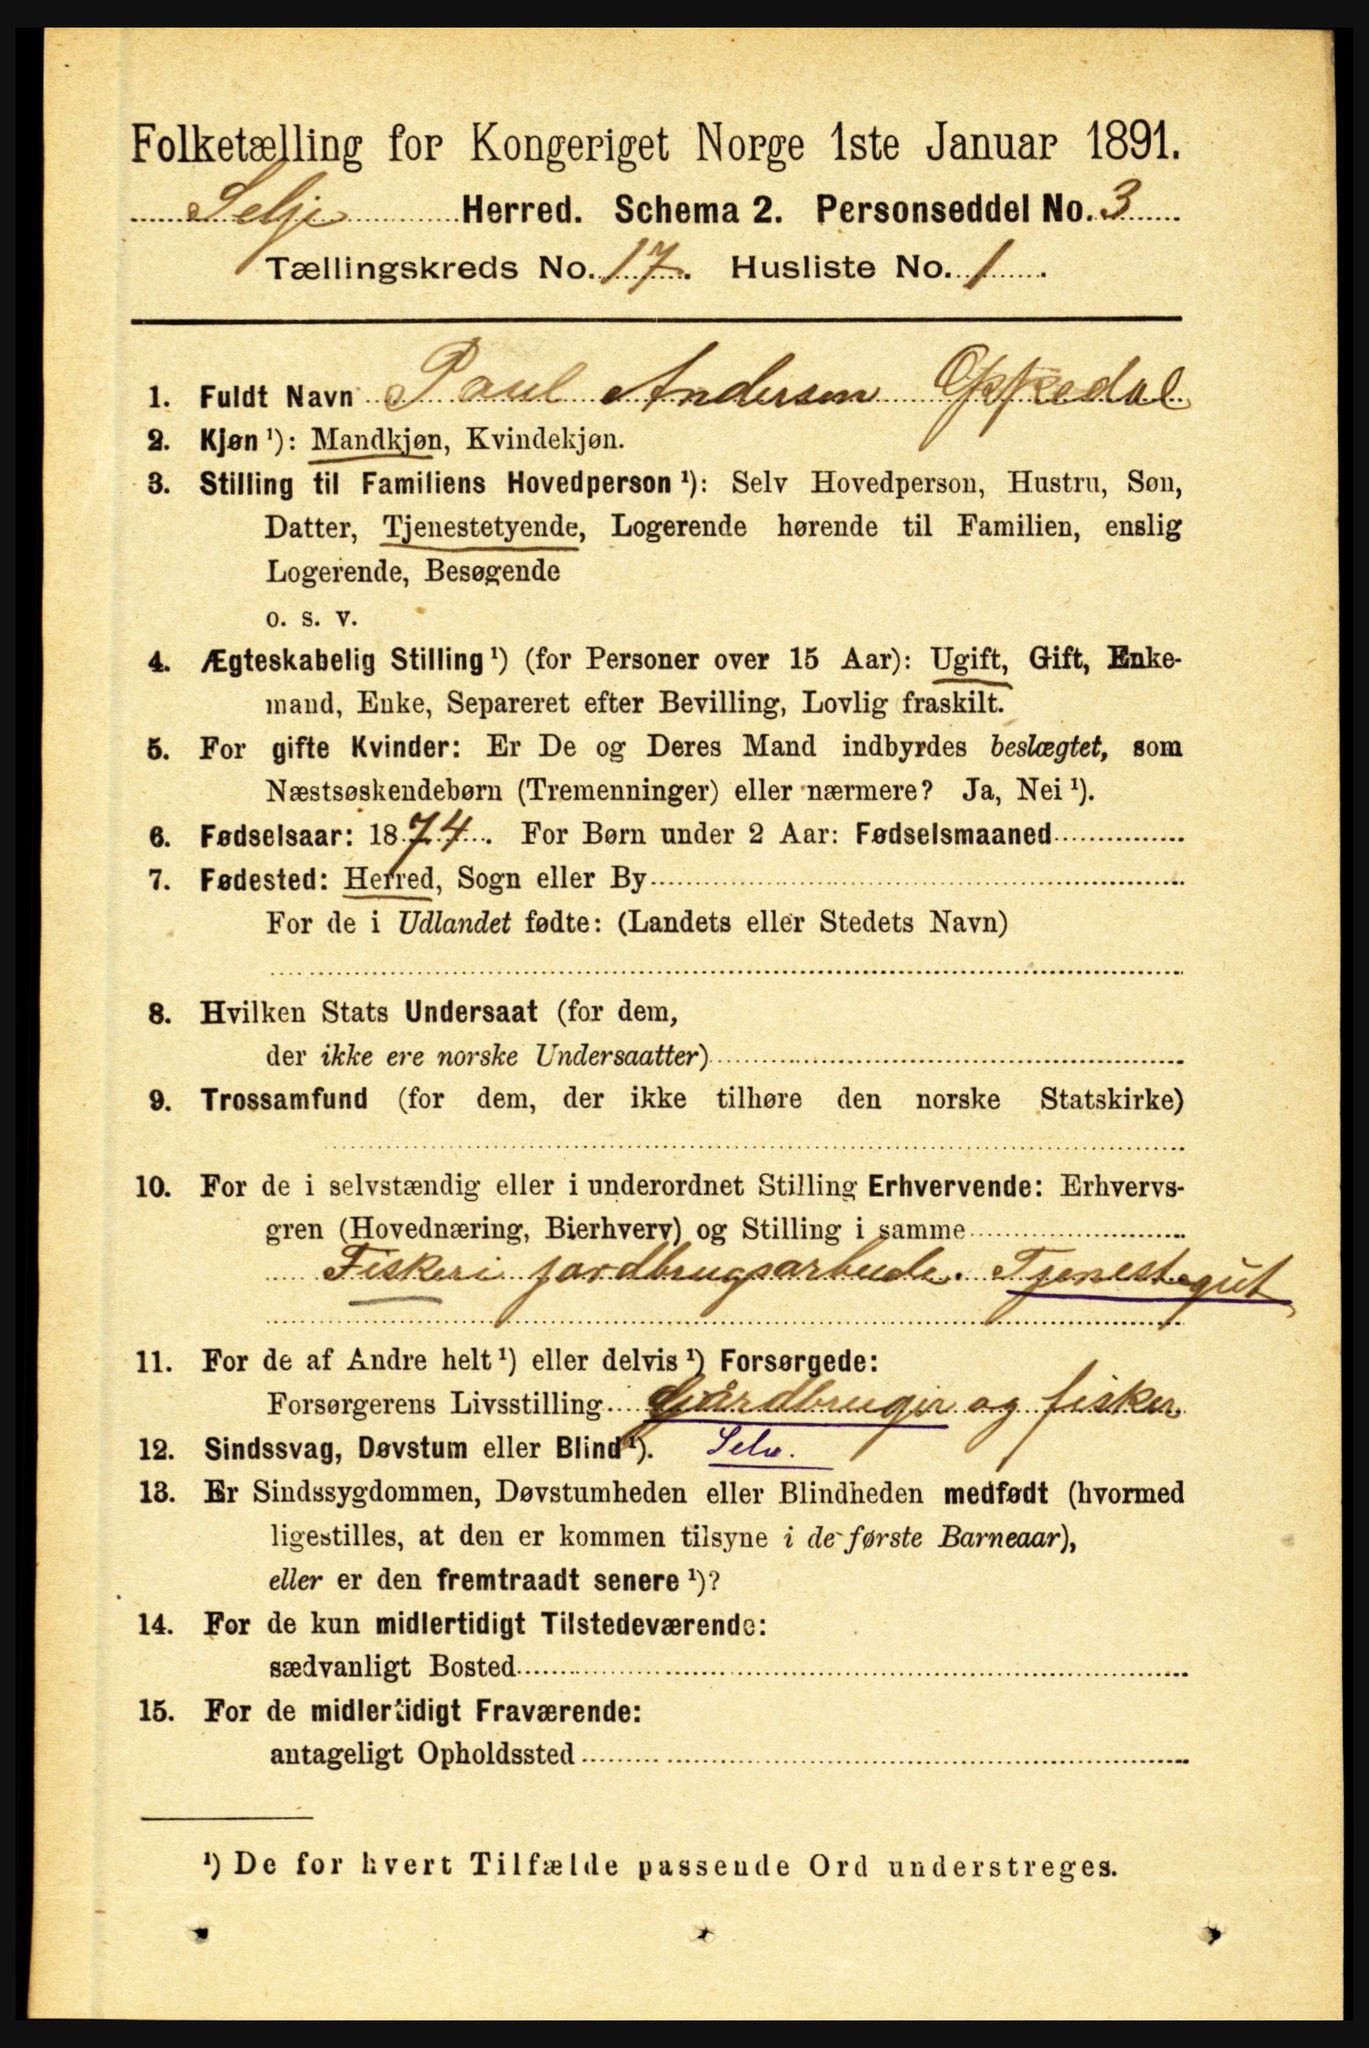 Folketælling for Kongeriget Norge 1ste Januar 1891.
Selje Herred. Schema 2. Personseddel No. 3
Tællingskreds No. 17. Husliste No. 1.
1. Fuldt Navn Paul Andersen Oppedal
2. Kjøn ¹): Mandkjøn, Kvindekjøn.
3. Stilling til Familiens Hovedperson ¹): Selv Hovedperson, Hustru, Søn,
Datter, Tjenestetyende, Logerende hørende til Familien, enslig
Logerende, Besøgende
o. s. v.
4. Ægteskabelig Stilling ¹) (for Personer over 15 Aar): Ugift, Gift, Enke-
mand, Enke, Separeret efter Bevilling, Lovlig fraskilt.
5. For gifte Kvinder: Er De og Deres Mand indbyrdes beslægtet, som
Næstsøskendebørn (Tremenninger) eller nærmere? Ja, Nei ¹).
6. Fødselsaar: 1874. For Børn under 2 Aar: Fødselsmaaned
7. Fødested: Herred, Sogn eller By
For de i Udlandet fødte: (Landets eller Stedets Navn)
8. Hvilken Stats Undersaat (for dem,
der ikke ere norske Undersaatter)
9. Trossamfund (for dem, der ikke tilhøre den norske Statskirke)
10. For de i selvstændig eller i underordnet Stilling Erhvervende: Erhvervs-
gren (Hovednæring, Bierhverv) og Stilling i samme
Fiskeri jordbrugsarbeide. Tjenestegut
11. For de af Andre helt ¹) eller delvis ¹) Forsørgede:
Forsørgerens Livsstilling Gårdbruger og fisker
12. Sindssvag, Døvstum eller Blind ¹). Selv.
13. Er Sindssygdommen, Døvstumheden eller Blindheden medfødt (hvormed
ligestilles, at den er kommen tilsyne i de første Barneaar),
eller er den fremtraadt senere ¹)?
14. For de kun midlertidigt Tilstedeværende:
sædvanligt Bosted
15. For de midlertidigt Fraværende:
antageligt Opholdssted
¹) De for hvert Tilfælde passende Ord understreges.